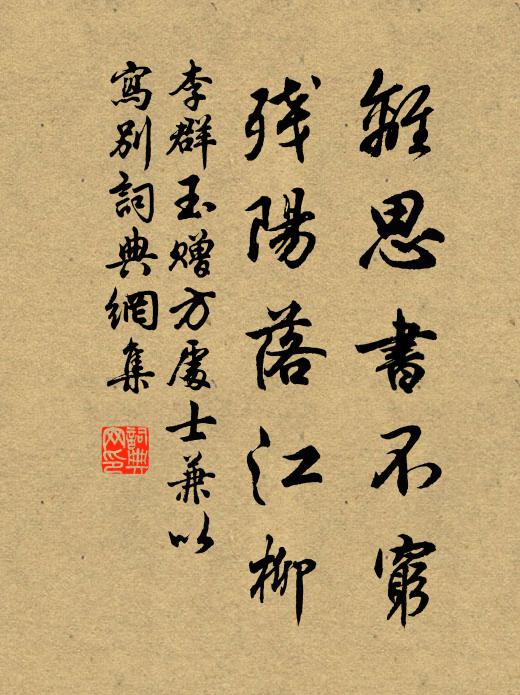 離思書不窮
殘陽落江柳
李群玉贈方處士兼以
寫別詞典網集
詞典網印